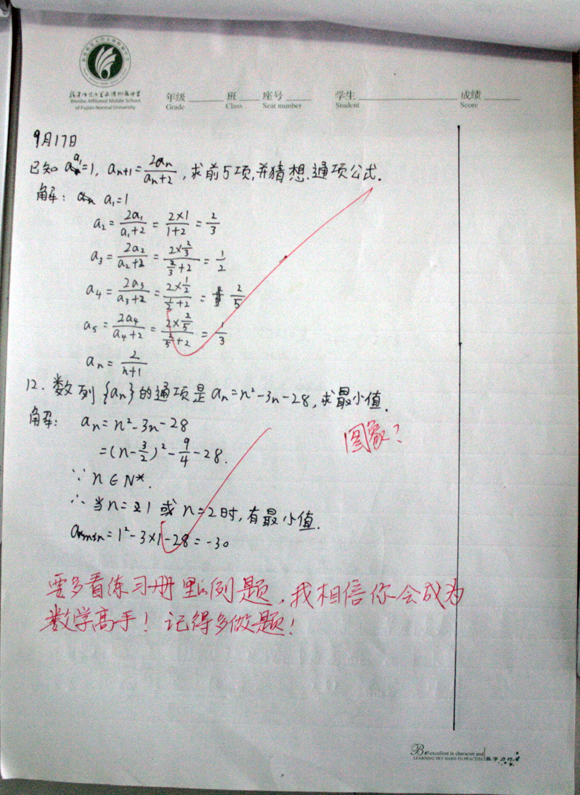 福建师范大学永泰附属中学
Wenbo Affiliated Middle School
of Fujian Normal University
年级 班 座号 学生 成绩
Grade Class Seat number Student Score
9月17日
已知 a₁=1, aₙ₊₁=2aₙ/(aₙ+2), 求前5项,并猜想通项公式.
解: a₁=1
a₂=2a₁/(a₁+2)=2×1/(1+2)=2/3
a₃=2a₂/(a₂+2)=(2×2/3)/(2/3+2)=1/2
a₄=2a₃/(a₃+2)=(2×1/2)/(1/2+2)=2/5
a₅=2a₄/(a₄+2)=(2×2/5)/(2/5+2)=1/3
aₙ=2/(n+1)
12. 数列{aₙ}的通项是aₙ=n²-3n-28,求最小值.
解: aₙ=n²-3n-28
图象?
=(n-3/2)²-9/4-28.
∵ n∈N*.
∴ 当n=1或n=2时,有最小值.
aₙmin=1²-3×1-28=-30
要多看练习册里的例题,我相信你会成为
数学高手!记得多做题!
Be excellent in character and
LEARNING TRY HARD TO PRACTISE